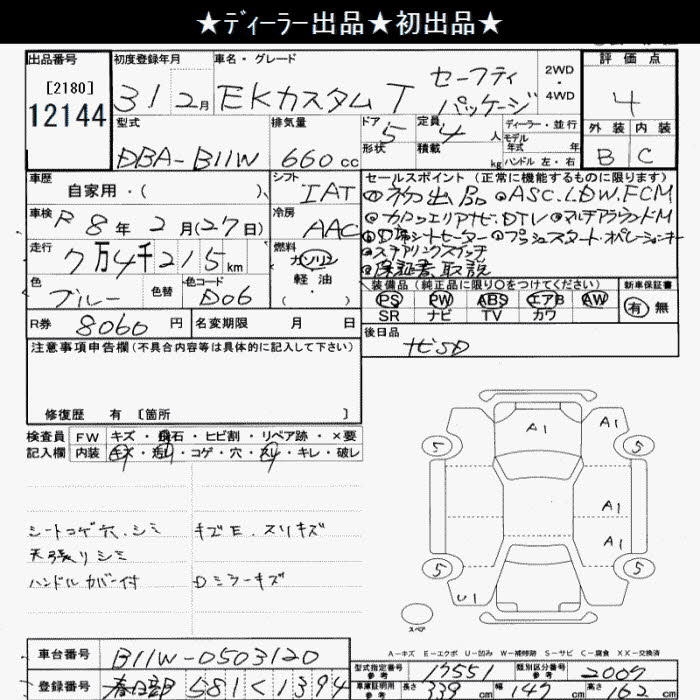 ★ディーラー出品★初出品★
出品番号
[2180]
12144
初度登録年月
31 2月
車名・グレード
EKカスタム T セーフティ
パッケージ
2WD
・
4WD
評価点
4
外装 内装
B C
型式
DBA-B11W
排気量
660 cc
ドア 5
形状
定員 4 人
積載 kg
ディーラー・並行
モデル
年式 年
ハンドル 左・右
車歴
自家用・( )
シフト
IAT
車検 R 8年 2月(27日)
冷房
AAC
走行
7万4千215km
燃料
ガソリン
軽油
( ・ )
色
ブルー
色替
色コード
D06
R券 8060 円
名変期限 月 日
セールスポイント(正常に機能するものに限ります)
①初出品 ②ASC.LDW.FCM
D席シートヒーター
プッシュスタート・オペレーションキー
ステアリングスイッチ
保証書 取説
装備品(純正品に限り○をつけてください)
PS PW ABS エアB AW
SR ナビ TV カワ
新車保証書
有 無
後日品
ナビSD
注意事項申告欄(不具合内容等は具体的に記入して下さい)
修復歴 有 [箇所 ]
検査員 FW キズ・飛石・ヒビ割・リペア跡・×要
記入欄 内装 キズ・汚れ・コゲ・穴・スリ・キレ・破レ
シートコゲ穴、シミ
天張リシミ
ハンドルカバー付
キズE、スリキズ
Dミラーキズ
A1
A1
5
5
A1
A1
5
5
U1
スペア
A-キズ E-エクボ U-凹み W-補修跡 S-サビ C-腐食 XX-交換済
車台番号 B11W-0503120
登録番号 春日部 581く1394
型式指定番号
参考
17551
類別区分番号
参考
2007
車庫証明用
参考
長さ 339 cm
幅 147 cm
高さ 162 cm